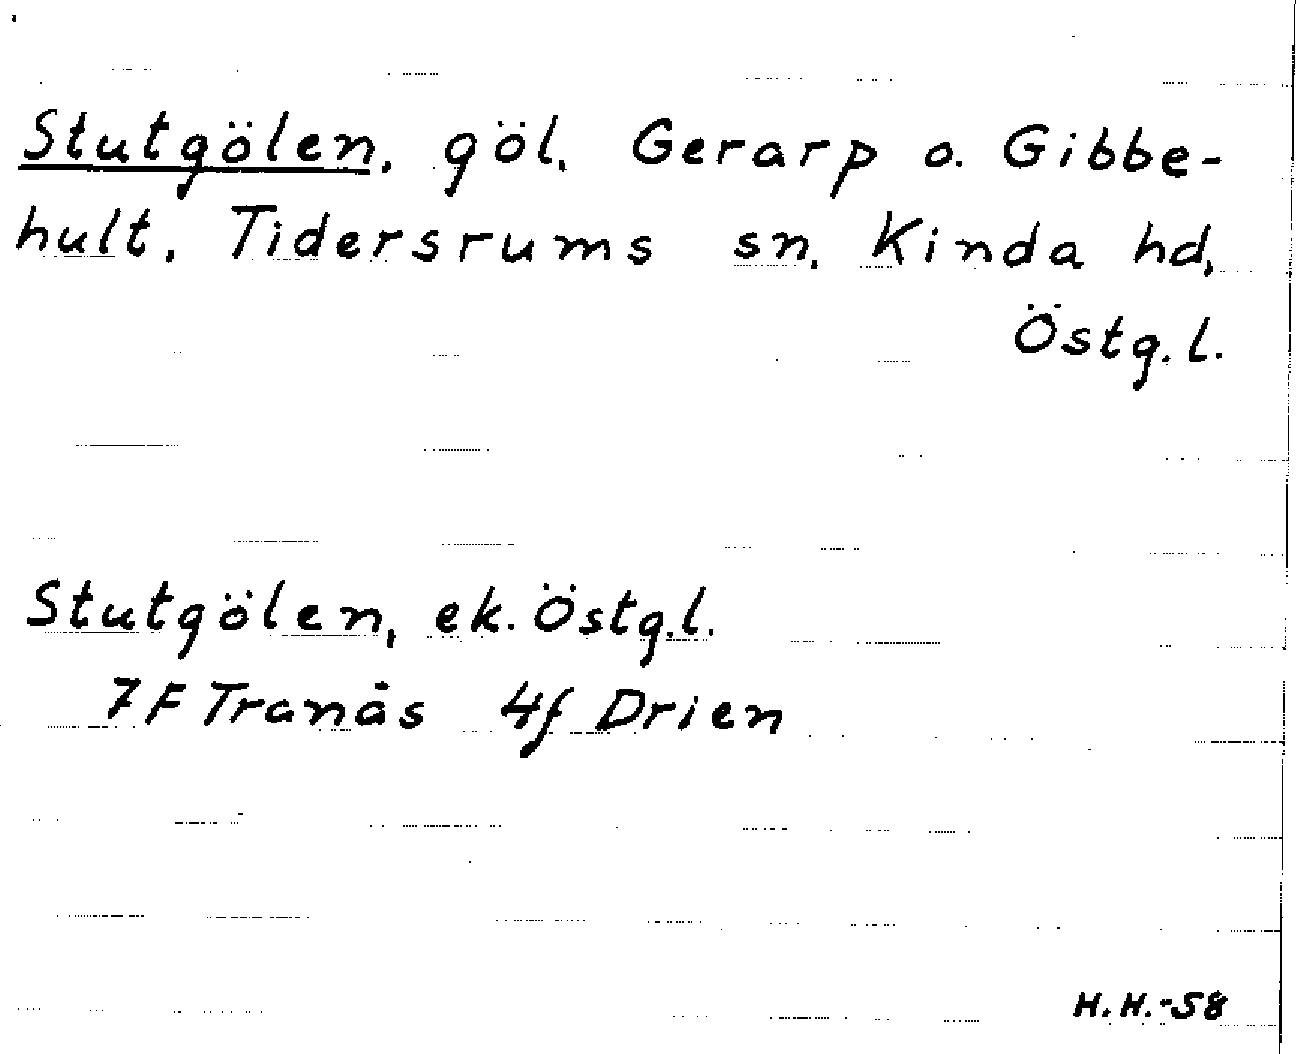 Stutgölen, göl, Gerarp o. Gibbe-
hult, Tidersrums sn, Kinda hd,
Östg.l.
Stutgölen, ek. Östg.l.
7F Tranås 4f Drien
H.H.-58